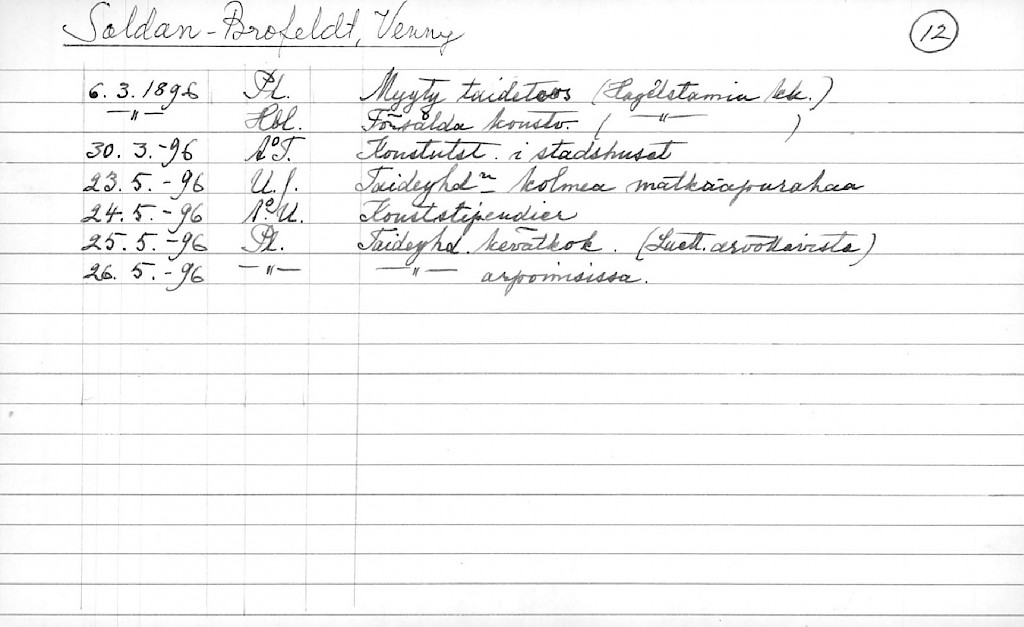 Soldan-Brofeldt, Venny 12
6. 3. 1896 Pl. Myyty taideteos (Hagelstamin kk.)
—"— Hbl. Försålda konstv. ( —"— )
30. 3. -96 Å.T. Konstutst. i stadshuset
23. 5. -96 U.S. Taideyhdn kolmea matkaapurahaa
24. 5. -96 Å.U. Konststipendier
25. 5. -96 Pl. Taideyhd. kevätkok. (Luett. arvottavista)
26. 5. -96 —"— —"— arpoimisissa.